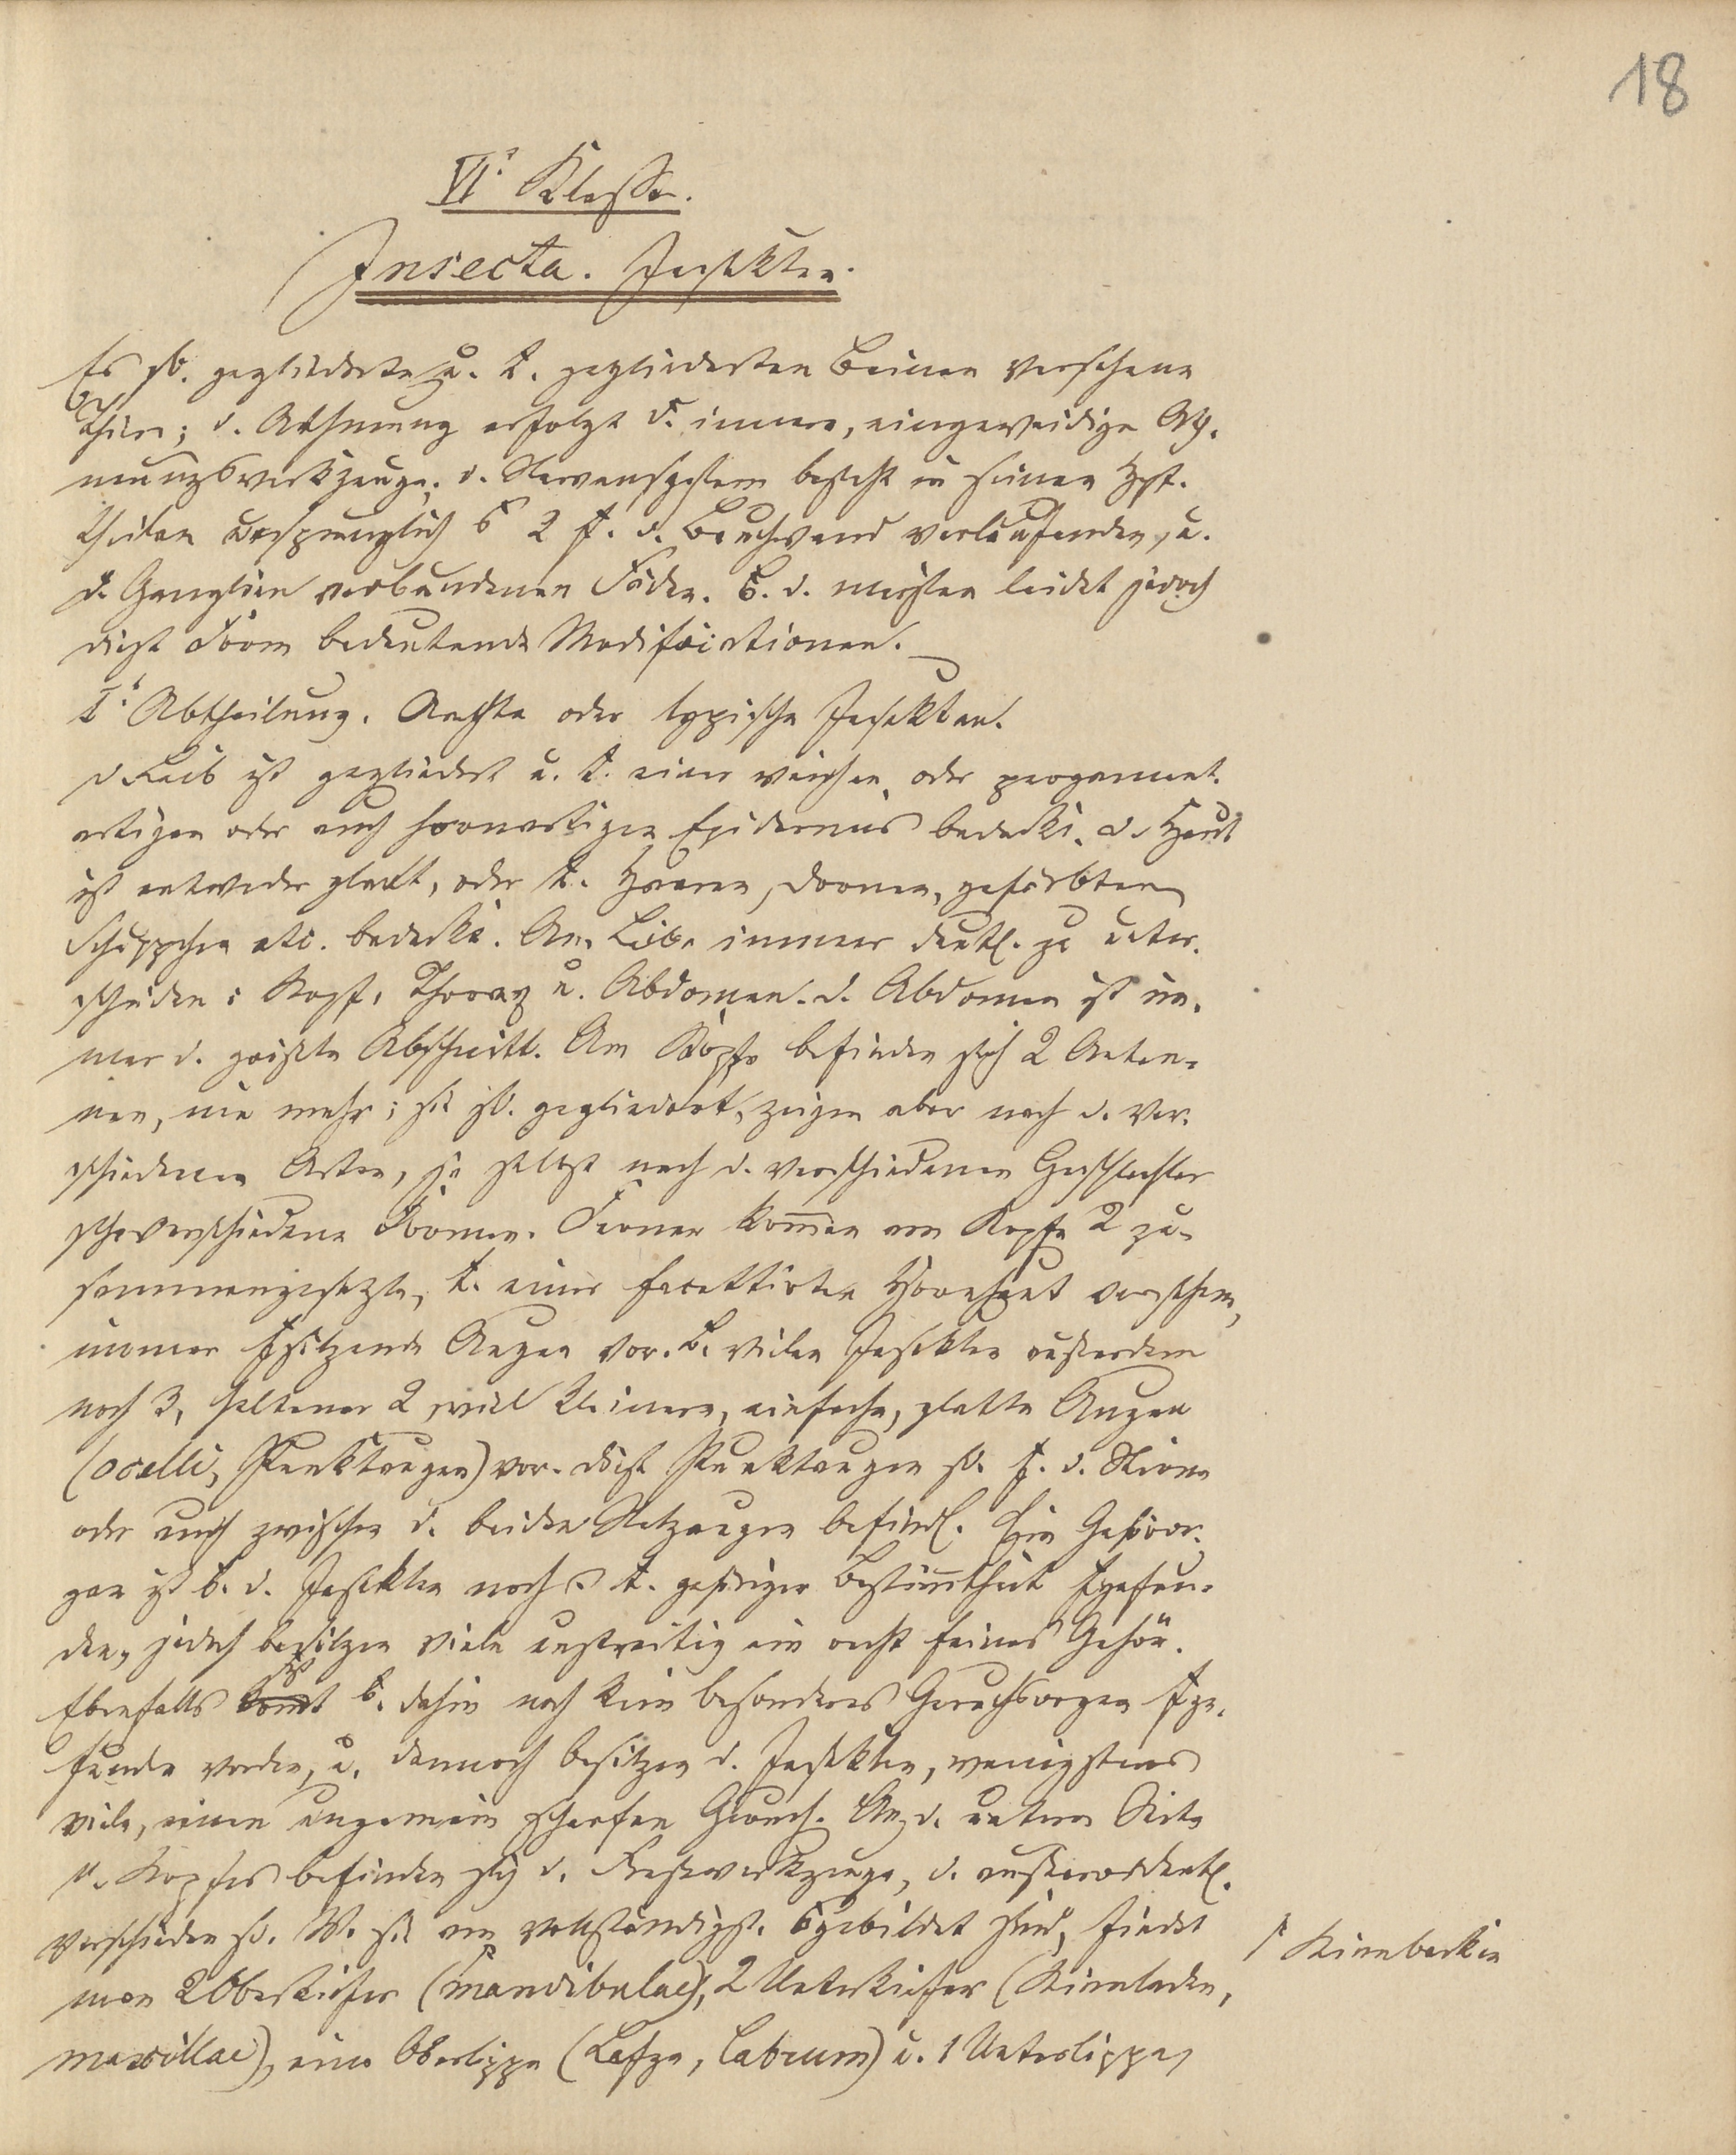 18
VIᵉ Klasse.
Insecta. Insekten.
Es sd. gegliederte u. t. gegliederten Beinen versehene
Thiere; d. Athmung erfolgt d. innere, eingeweidige Ath-
mungswerkzeuge. d. Nervensystem besteht in seinen Hpt-
theilen ursprünglich 2 d. Bauchwand verlaufenden, u.
d. Ganglien verbundenen Fäden. B. d. meisten leidet jedoch
diese Form bedeutende Modificationen.
Iᵉ Abtheilung. Aechte oder typische Insekten.
d. Leib ist gegliedert u. t. einer weichen oder pergament-
artigen oder auch hornartigen Epidermis bedeckt. d. Haut
ist entweder glatt, oder t. Haaren, Dornen, gefärbten
Schüppchen etc. bedeckt. Am Leibe immer deutl. zu unter-
scheiden: Kopf, Thorax u. Abdomen. d. Abdomen ist im-
mer d. größte Abschnitt. Am Kopfe befinden sich 2 Anten-
nen, nie mehr; sie sd. gegliedert, zeigen aber nach d. ver-
schiedenen Arten, ja selbst nach d. verschiedenen Geschlechter
sehr verschiedene Formen. Ferner kommen am Kopfe 2 zu-
sammengesetzte, t. einer facettirten Hornhaut versehene,
immer sitzende Augen vor. B. vielen Insekten außerdem
noch 3, seltener 2 viel kleinere, einfache, glatte Augen
(ocelli, Punktaugen) vor. diese Punktaugen sd. d. Stirne
oder auch zwischen d. beiden Netzaugen befindl. Ein Gehöror-
gan ist b. d. Insekten noch t. gehöriger Bestimmtheit gefun-
den, jedoch besitzen viele unstreitig ein recht feines Gehör.
Ebenfalls ist b. dahin noch kein besonderes Geruchsorgan ge-
funden worden, u. dennoch besitzen d. Insekten, wenigstens
viele, einen ungemein scharfen Geruch. An d. untern Seite
d. Kopfes befinden sich d. Freßwerkzeuge, d. außerordentl.
verschieden sd. W. sie am vollständigst. gebildet sind, findet
man 2 Oberkiefer (mandibulae), 2 Unterkiefer (Kinnladen,
maxillae), eine Oberlippe (Lefze, labrum) u. 1 Unterlippe,
Kinnbacken